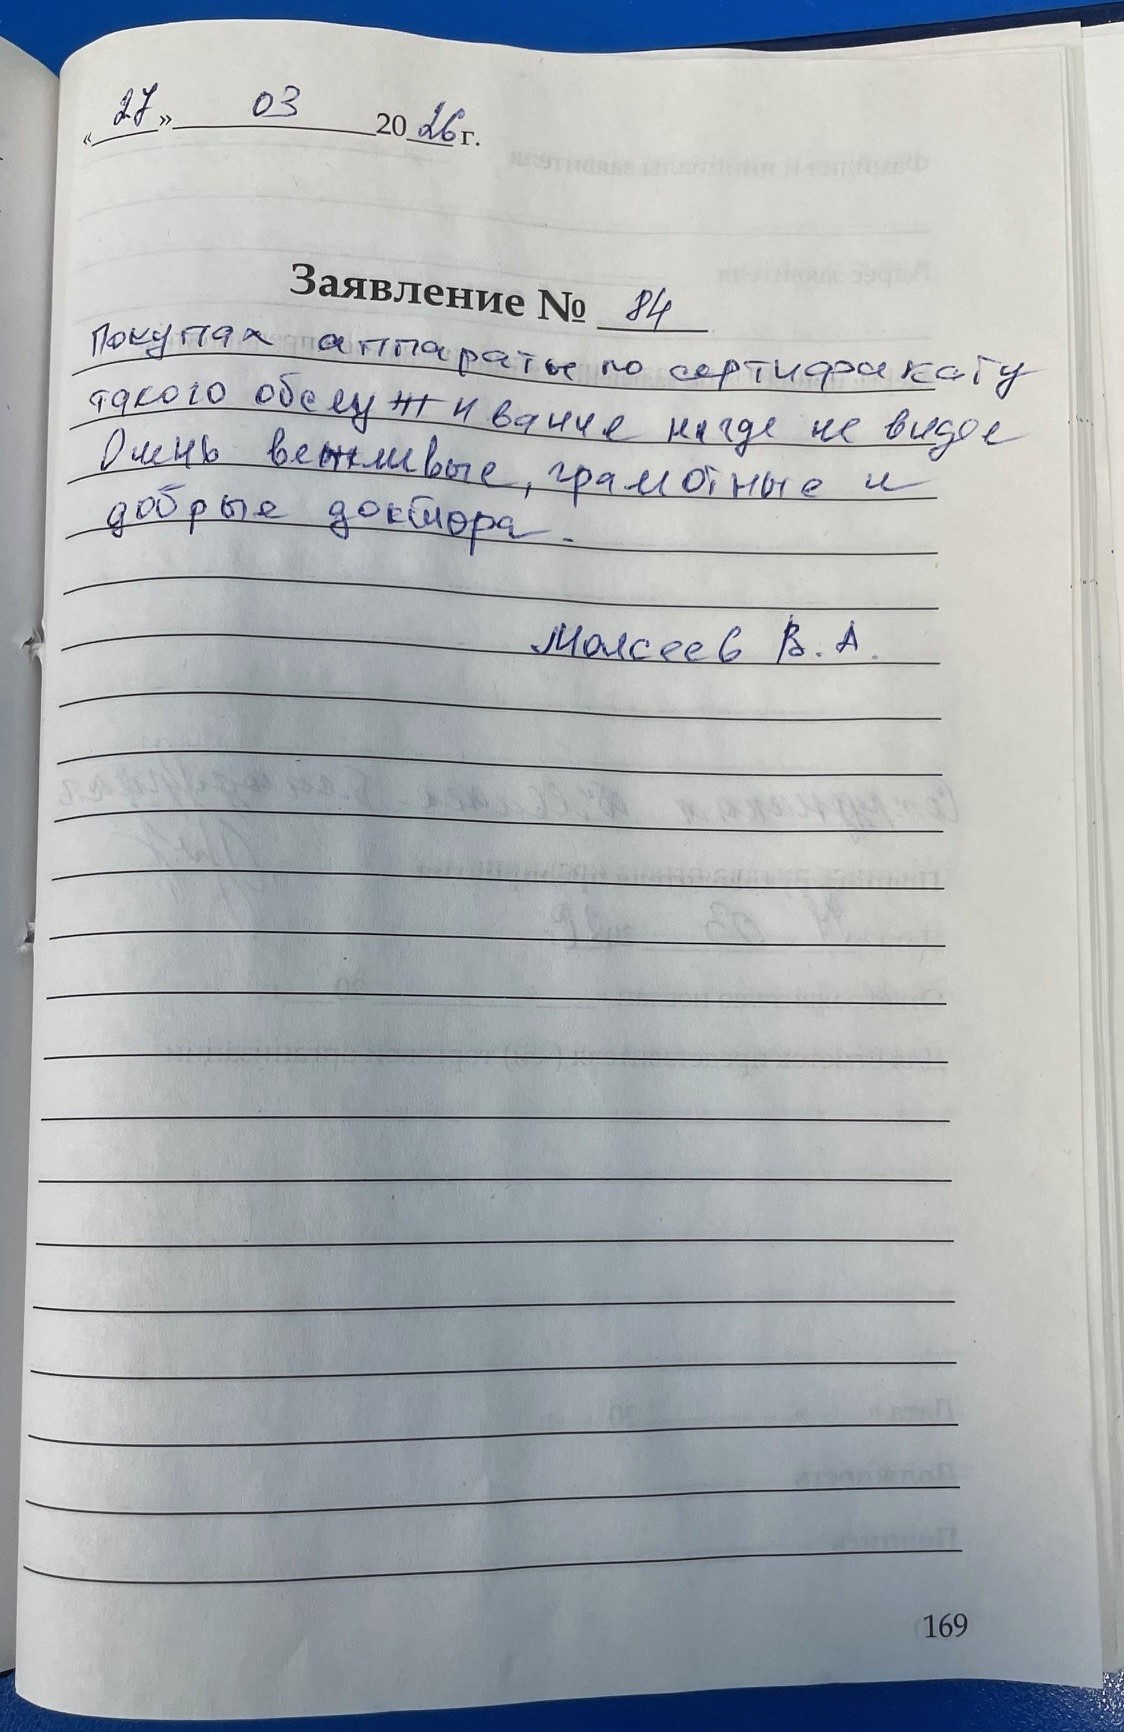 «27» 03 2026 г.
Заявление № 84
Покупал аппараты по сертификату
такого обслуживание нигде не видел
Очень вежливые, грамотные и
добрые доктора.
Моисеев В. А.
169